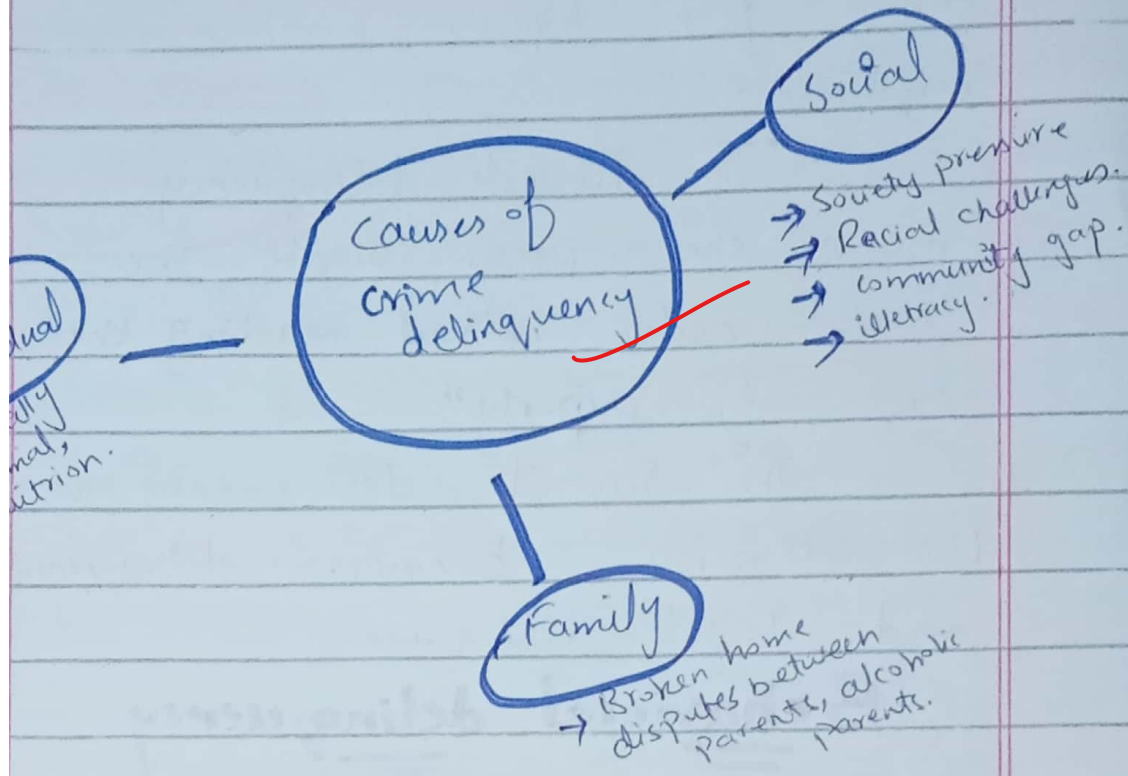 Social
→ Society pressure
→ Racial challenges.
→ community gap.
→ illetracy.
causes of
crime
delinquency
Family
→ Broken home
disputes between
parents, alcoholic
parents.